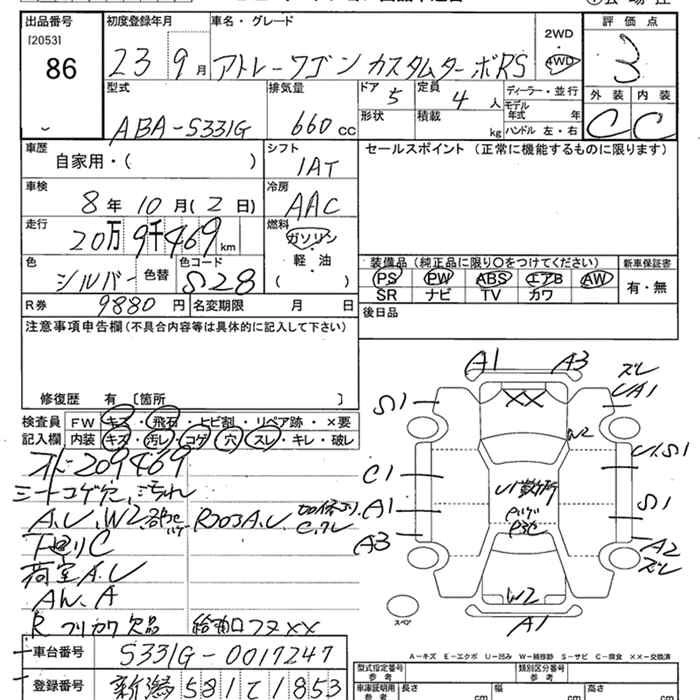 出品番号 初度登録年月 車名・グレード 2WD 評価点
[2053] 86 23年 9月 アトレーワゴン カスタムターボRS 4WD 3
型式 排気量 ドア 5 定員 4人 ディーラー・並行 外装 内装
ABA-S331G 660cc 形状 積載 kg モデル年式 年 ハンドル 左・右 C C
車歴 シフト セールスポイント (正常に機能するものに限ります)
自家用・( ) IAT
車検 冷房
8年 10月 (2日) AAC
走行 燃料
20万9千469km ガソリン
色 色替 色コード 軽・油 装備品 (純正品に限り○をつけてください) 新車保証書
シルバー S28 ( ) PS PW ABS エアB AW 有・無
SR ナビ TV カワ
R券 9880円 名変期限 月 日 後日品
注意事項申告欄 (不具合内容等は具体的に記入して下さい)
修復歴 有 〔箇所 〕
検査員 FW キズ・飛石・ヒビ割・リペア跡・×要
記入欄 内装 キズ・汚レ・コゲ・穴・スレ・キレ・破レ
オドー209469
シートコゲ穴、汚れ
A.U、W2
下廻りC
荷室A.U
AW.A
R フリカワ欠品 給油口フタ××
車台番号 S331G-0017247
登録番号 新潟581て1853
A1 A3
ズレ
UA1
S1
××
W2
U1.S1
C1
U1散所
S1
A1
A3
A2
ズレ
W2
A1
スペア
A－キズ E－エクボ U－凹み W－補修跡 S－サビ C－腐食 ××－交換済
型式指定番号 参考 類別区分番号 参考
車庫証明用 参考 長さ cm 幅 cm 高さ cm